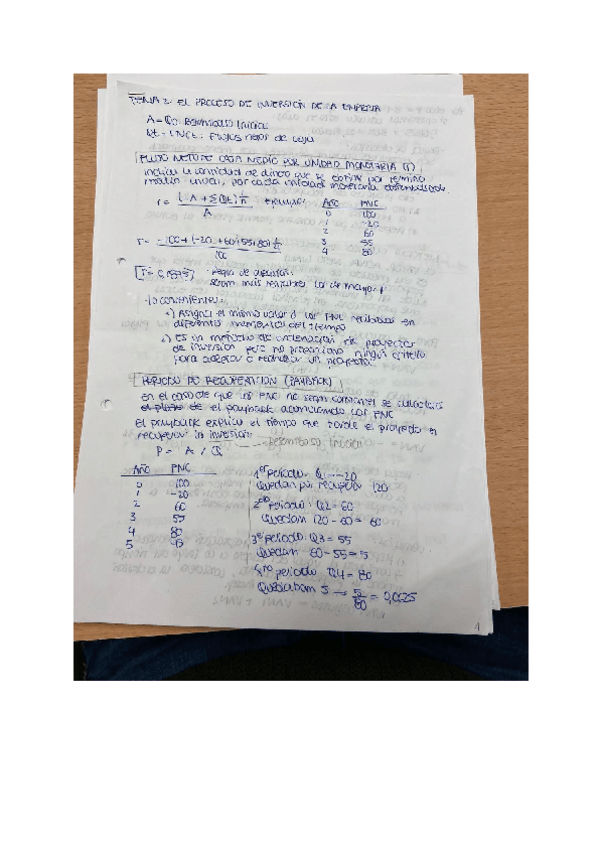 TEMA 2: EL PROCESO DE INVERSIÓN DE LA EMPRESA
A = Q0: Desembolso Inicial
Qt = FNCt: Flujos netos de caja
FLUJO NETO DE CAJA MEDIO POR UNIDAD MONETARIA (r)
indica la cantidad de dinero que se obtiene por término
medio anual, por cada unidad monetaria desembolsada.
r = (-A + ΣQt) 1/n / A ejemplo: AÑO FNC
0 100
1 -20
2 60
r = -100 + (-20 + 60 + 55 + 80) 1/n / 100 3 55
4 80
r = - Regla de decisión:
serán más rentables los de mayor r
- Inconvenientes:
Asigna el mismo valor a los FNC recibidos en
diferentes momentos del tiempo
Es un método de ordenación de proyectos
de inversión pero no proporciona ningún criterio
para aceptar o rechazar un proyecto
PERIODO DE RECUPERACIÓN (PAYBACK)
en el caso de que los FNC no sean constantes se calculará
el plazo de el payback acumulando los FNC
El payback explica el tiempo que tarda el proyecto en
recuperar la inversión. desembolso inicial
P = A / Q
AÑO FNC
0 100
1 -20
2 60
3 55
4 80
5
1er periodo: Q1 = -20
Quedan por recuperar 120
2do periodo: Q2 = 60
Quedan 120 - 60 = 60
3er periodo: Q3 = 55
Quedan 60 - 55 = 5
4to periodo: Q4 = 80
Quedaban 5 → 5/80 = 0,0625
1